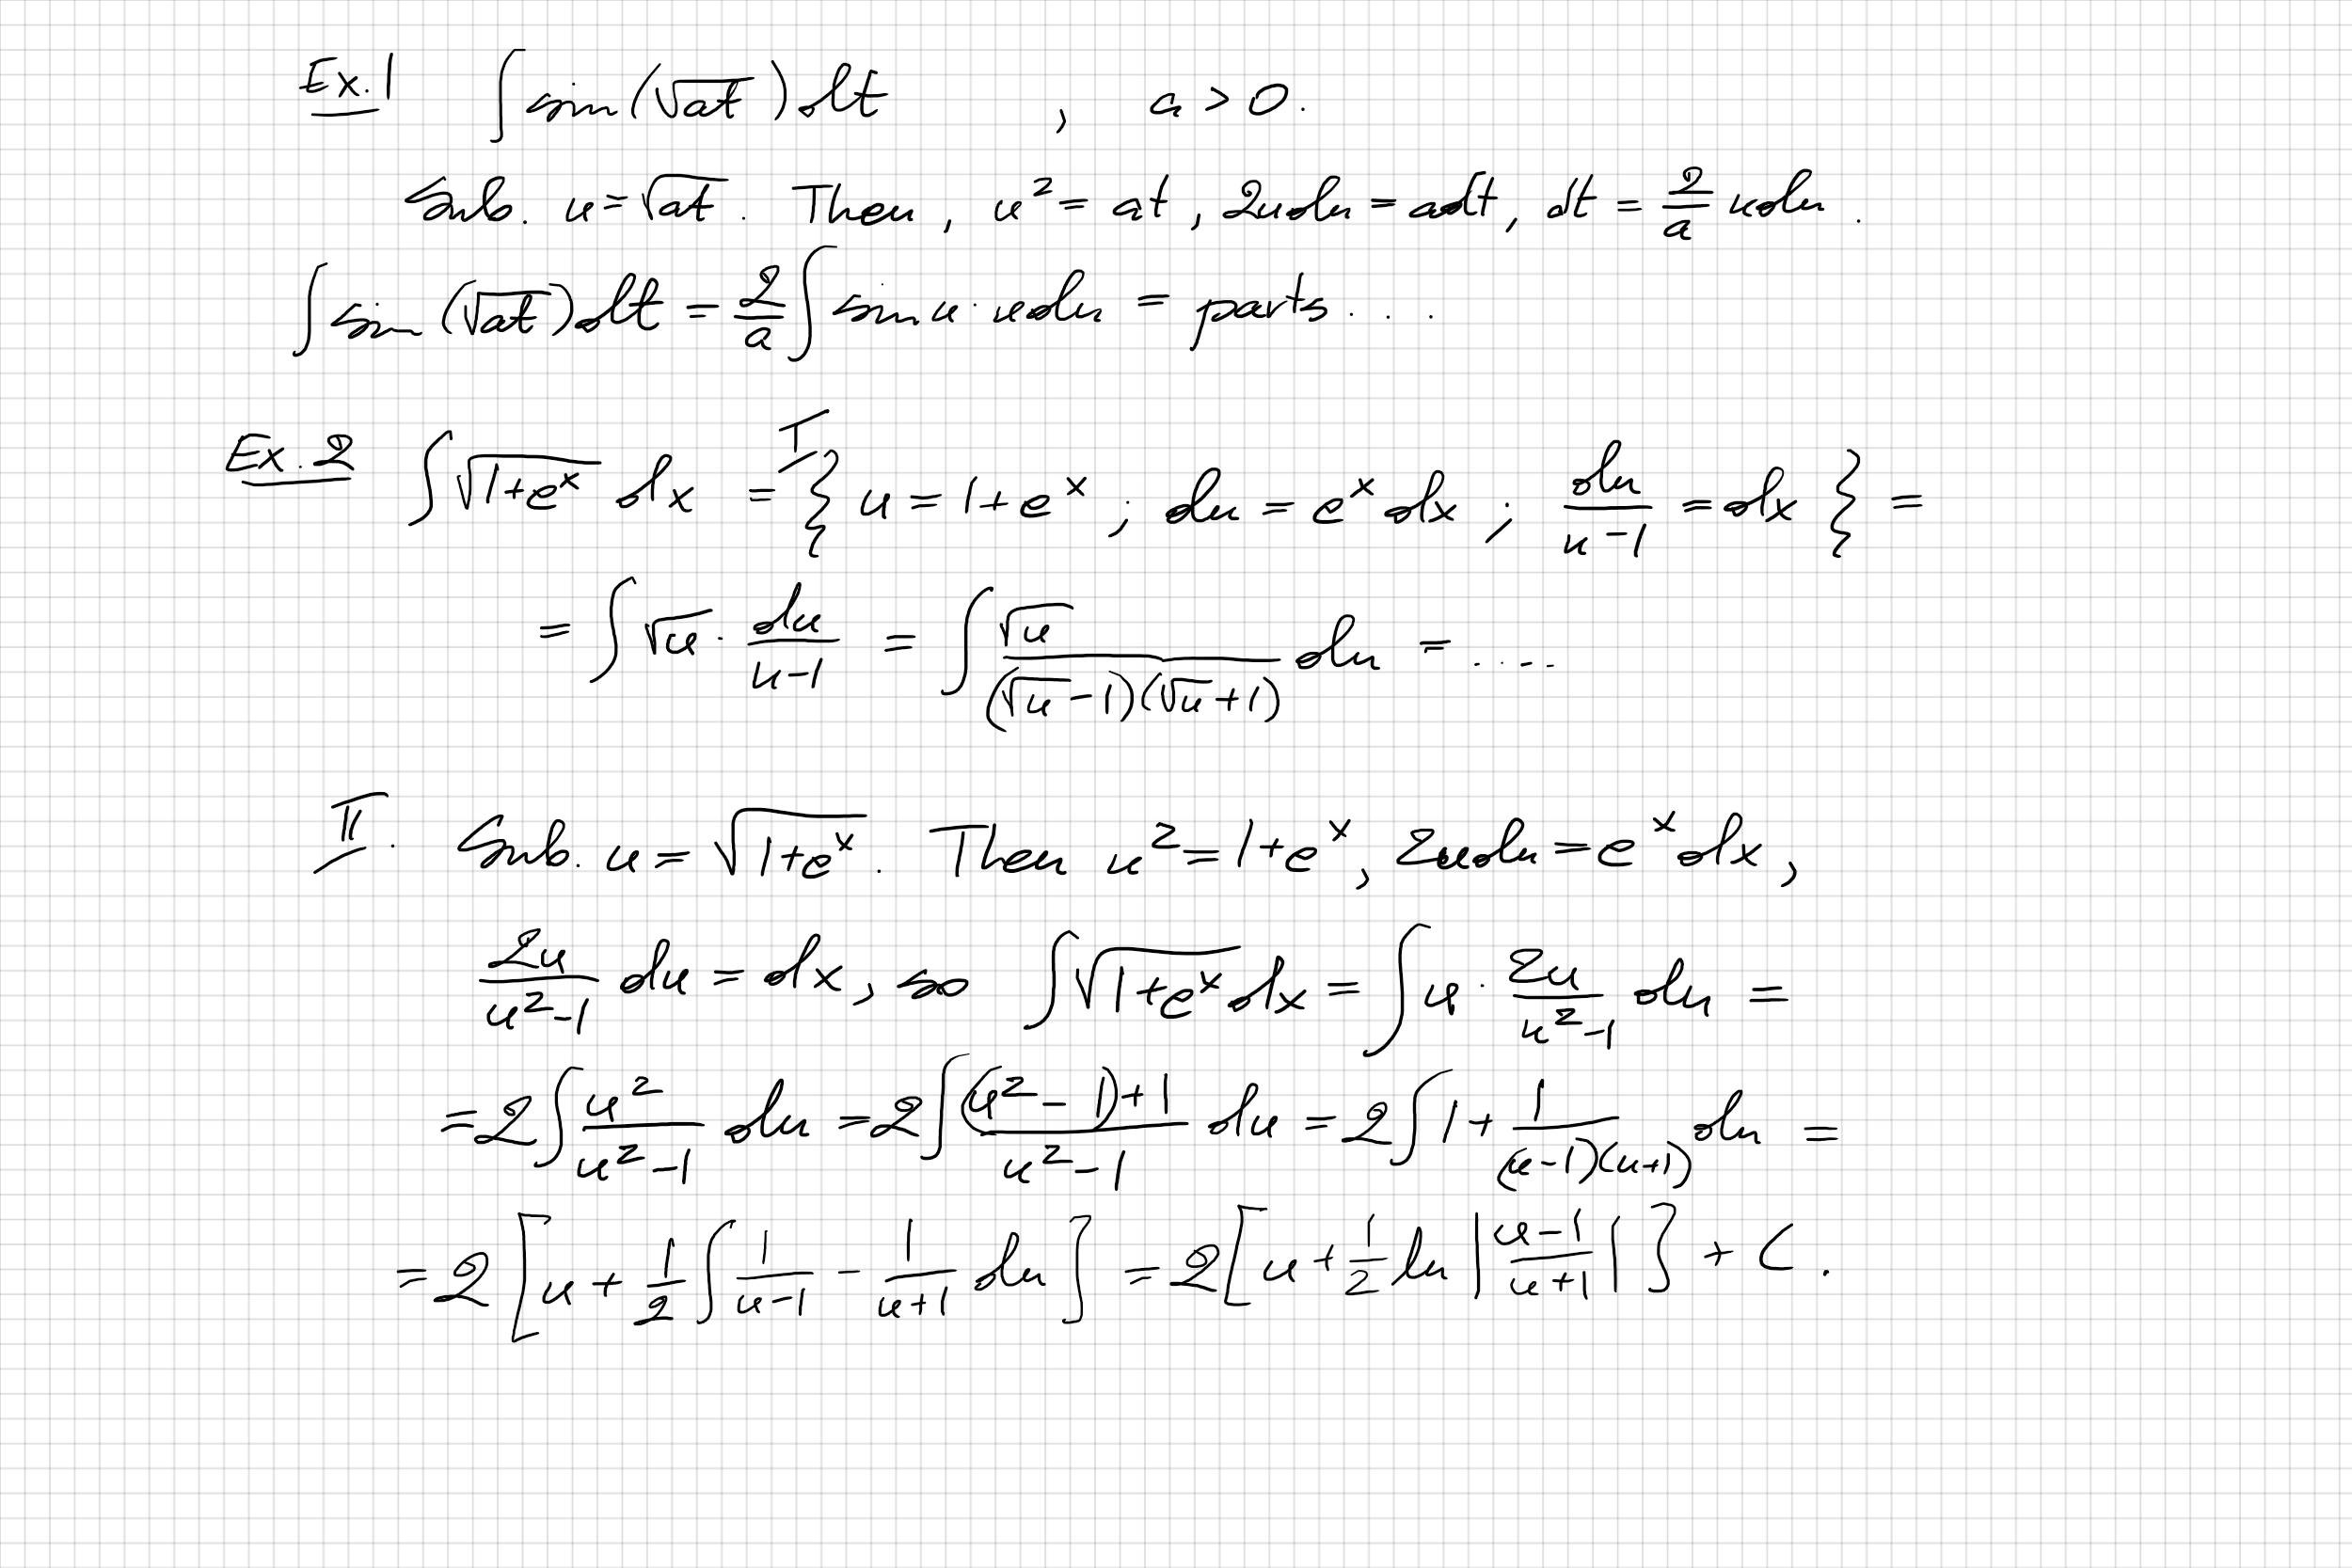 Ex. 1 ∫ sin(√(at)) dt , a > 0.
Sub. u = √(at). Then, u² = at, 2u du = a dt, dt = 2/a u du.
∫ sin(√(at)) dt = 2/a ∫ sin u · u du = parts...
Ex. 2 ∫ √(1+e^x) dx = I { u = 1+e^x ; du = e^x dx ; du/(u-1) = dx } =
= ∫ √u · du/(u-1) = ∫ √u/((√u-1)(√u+1)) du = ....
II. Sub. u = √(1+e^x). Then u² = 1+e^x, 2u du = e^x dx,
2u/(u²-1) du = dx, so ∫ √(1+e^x) dx = ∫ u · 2u/(u²-1) du =
= 2 ∫ u²/(u²-1) du = 2 ∫ ((u²-1)+1)/(u²-1) du = 2 ∫ 1 + 1/((u-1)(u+1)) du =
= 2 [ u + 1/2 ∫ 1/(u-1) - 1/(u+1) du ] = 2 [ u + 1/2 ln |(u-1)/(u+1)| ] + C.